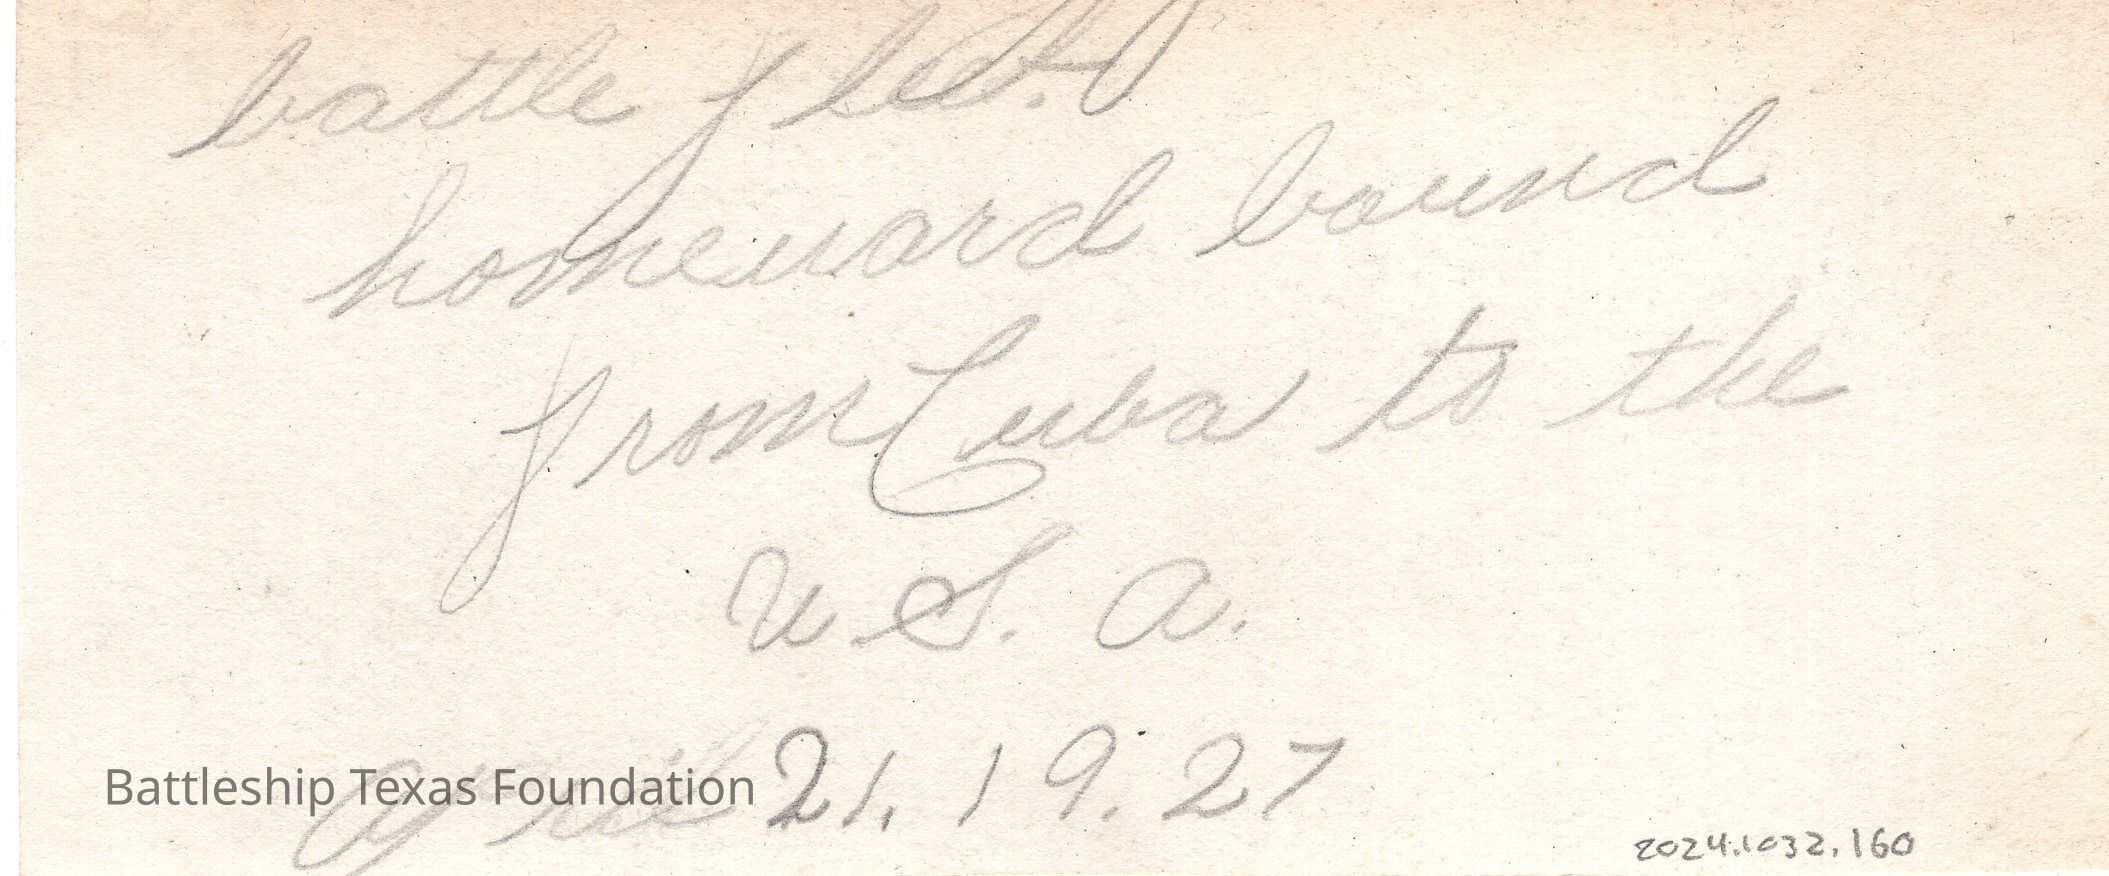 battle fleet.
homeward bound
from Cuba to the
U.S. A.
April 21. 19.27
Battleship Texas Foundation
2024.1032.160